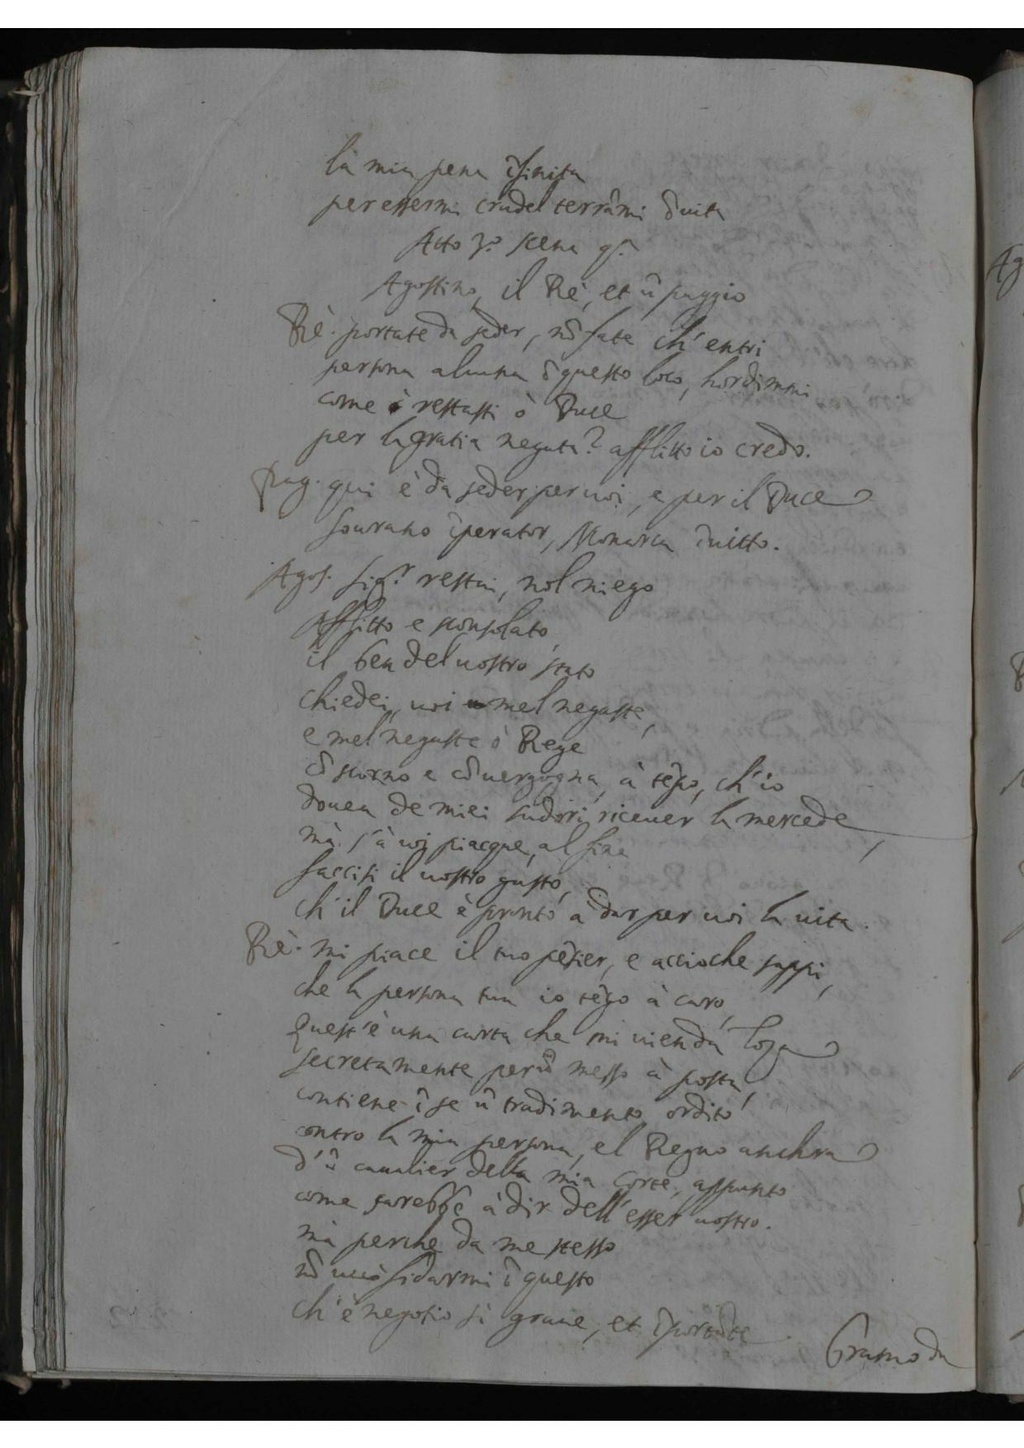 la mia pena ĩfinita
per essermi crudel terrãmi ĩ uita
Atto 3.º scena 9.ª
Agostino, il Rè, et ũ paggio
Rè. portate da seder, nõ fate ch'entri
persona alcuna ĩ questo loco, hor dimmi
come restasti ò Duce
per la gratia negata? afflitto io credo.
Pag. qui è da seder per uoi, e per il Duce
sourano ĩperator, Monarca ĩuitto.
Agos. Sig.r restai, nol niego
afflitto e sconsolato,
il ben del uostro stato
chiedei, uoi mel negaste,
e mel negaste ò Rege
cõ scorno e cõ uergogna, à tẽpo, ch'io
douea de miei sudori riceuer la mercede,
mà s'à uoi piacque, al fine
faccisi il uostro gusto,
ch'il Duce è pronto à dar per uoi la uita.
Rè. mi piace il tuo pẽsier, e accioche sappi,
che la persona tua io tẽgo à caro,
Quest'è una carta che mi uien da
secretamente per ũ messo à posta,
contiene ĩ se ũ tradimento ordito
contro la mia persona, el Regno anchora
d'ũ caualier della mia Corte, appunto
come sarebbe à dir dell'esser uostro.
mà perche da me stesso
nõ uuò fidarmi ĩ questo
ch'è negotio si graue, et ĩportãte
Bramo da